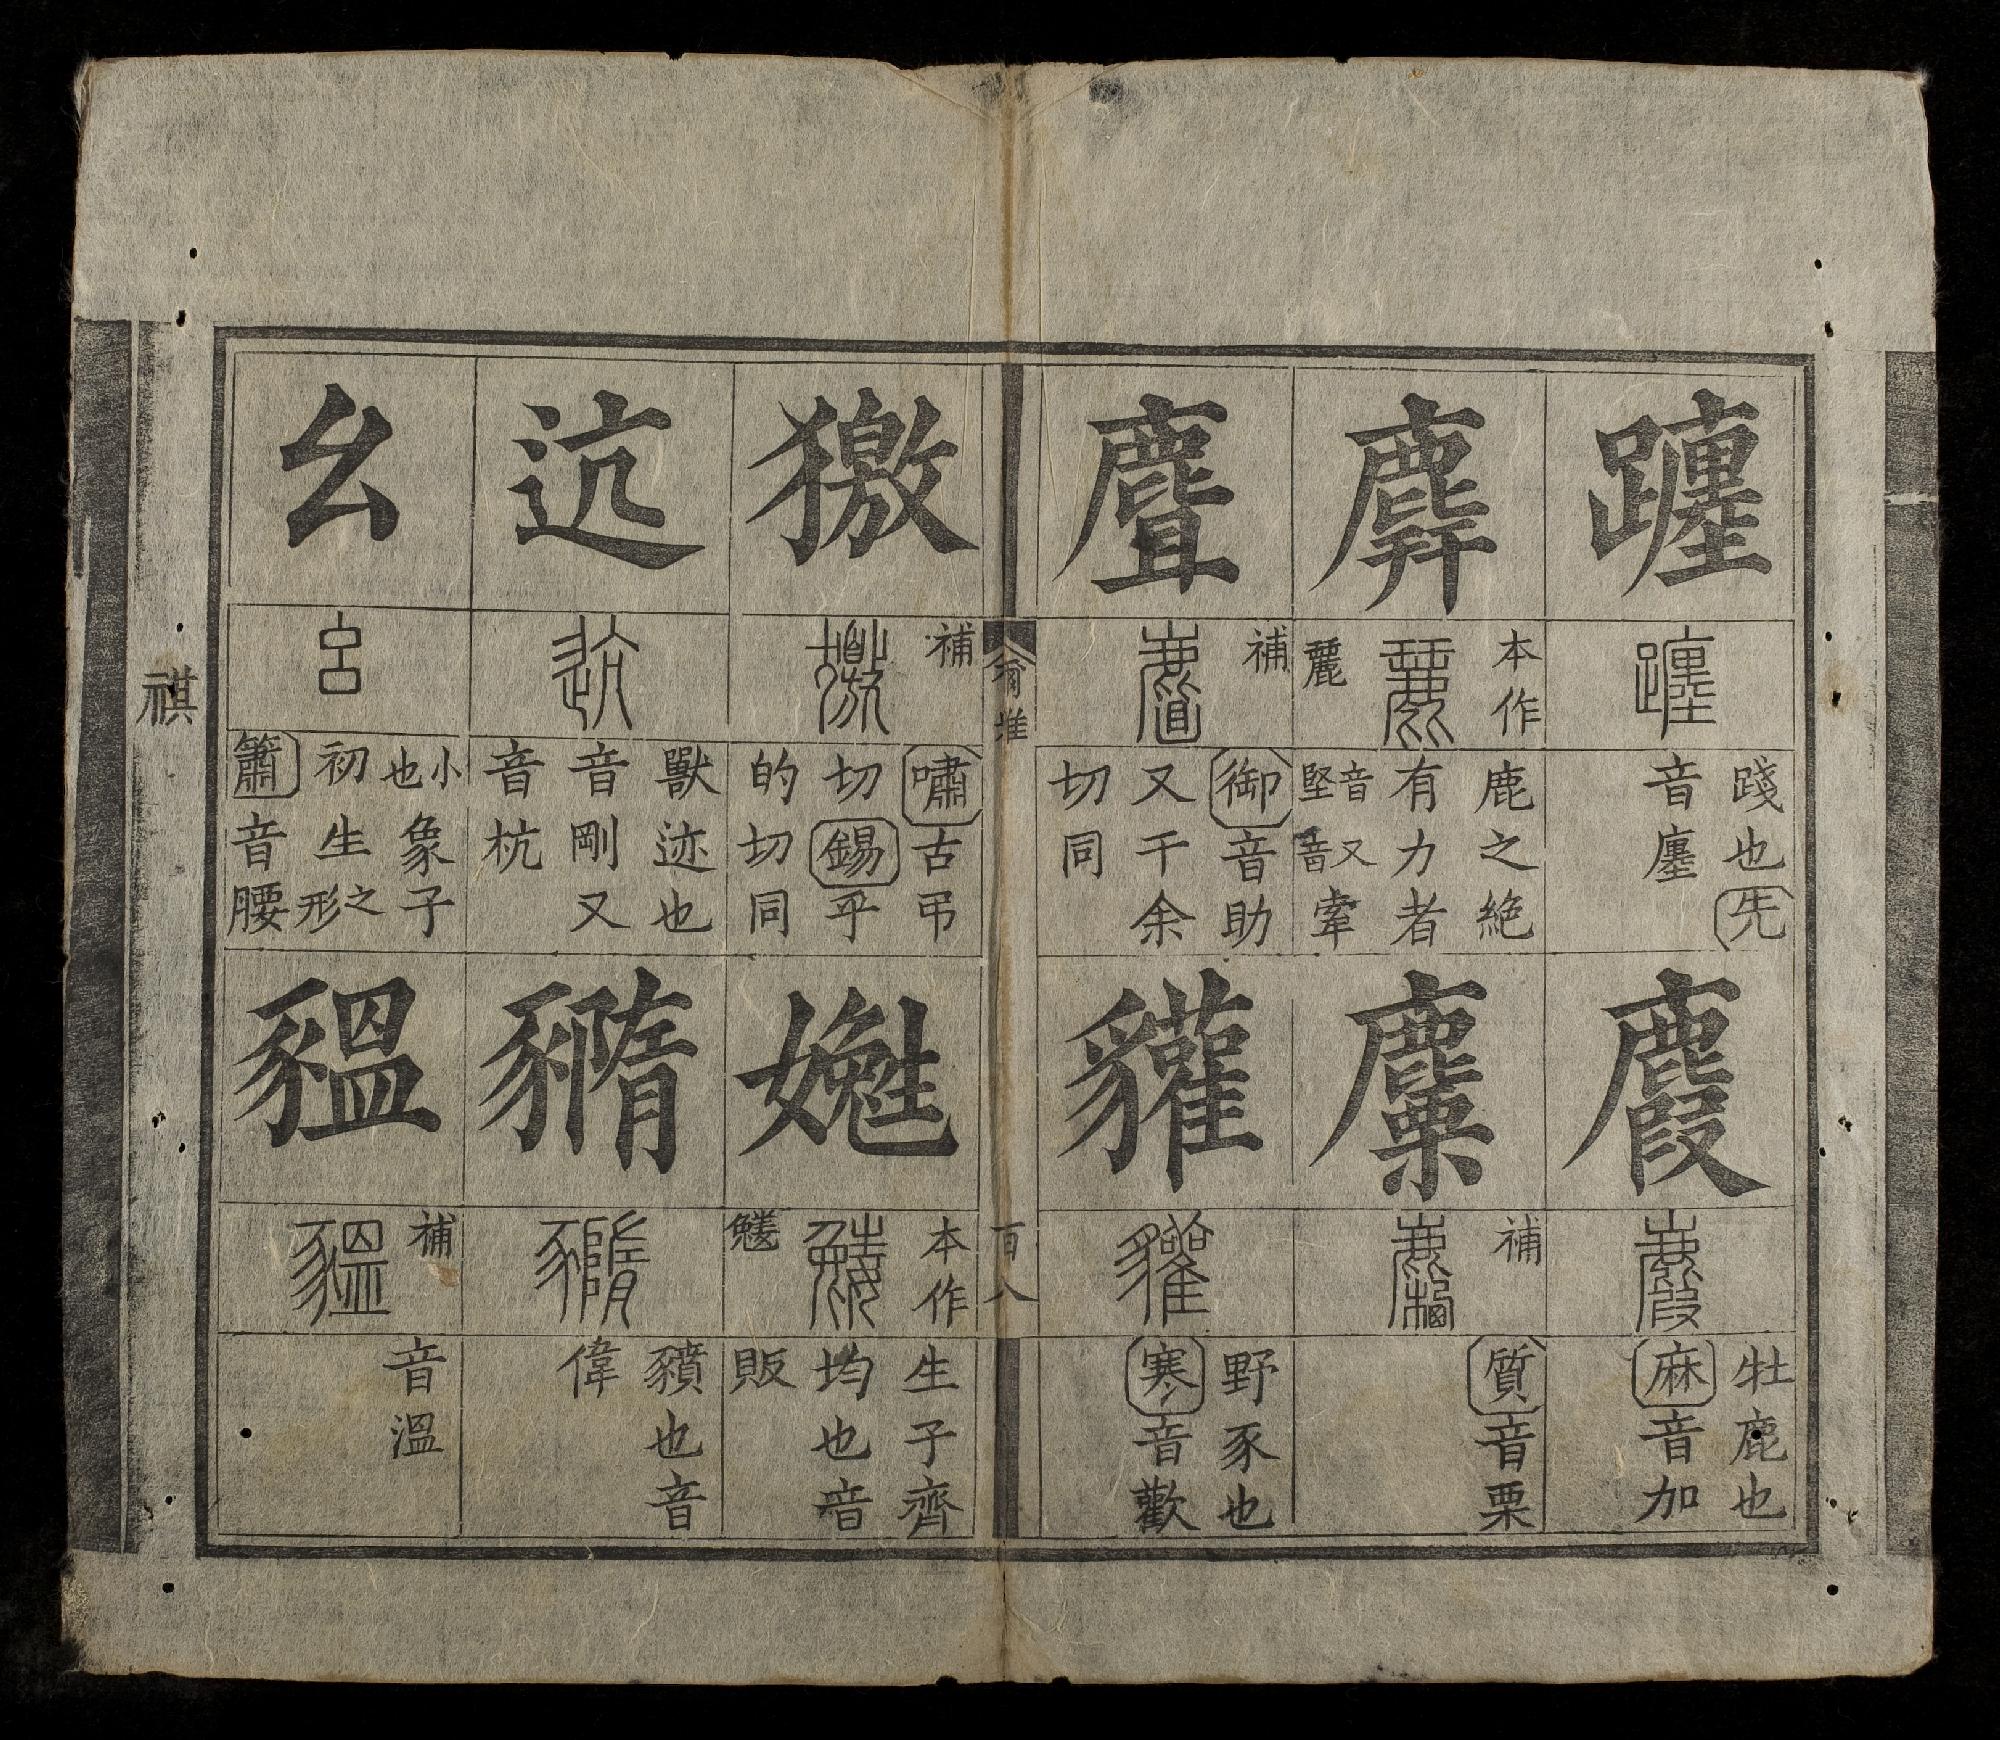 躔
踐也先
音廛
麚
牡鹿也
麻音加
麉
本作
鹿之絶
有力者
音堅又音牽
麜
補
質音栗
麆
補
御音助
又千余
切同
貛
野豕也
寒音歡
爾雅
百八
獥
補
嘯古弔
切錫乎
的切同
嬎
本作
生子齊
均也音
販
迒
獸迹也
音剛又
音杭
䝐
豶也音
偉
幺
小也象子
初生之形
簫音腰
豱
補
音溫
祺